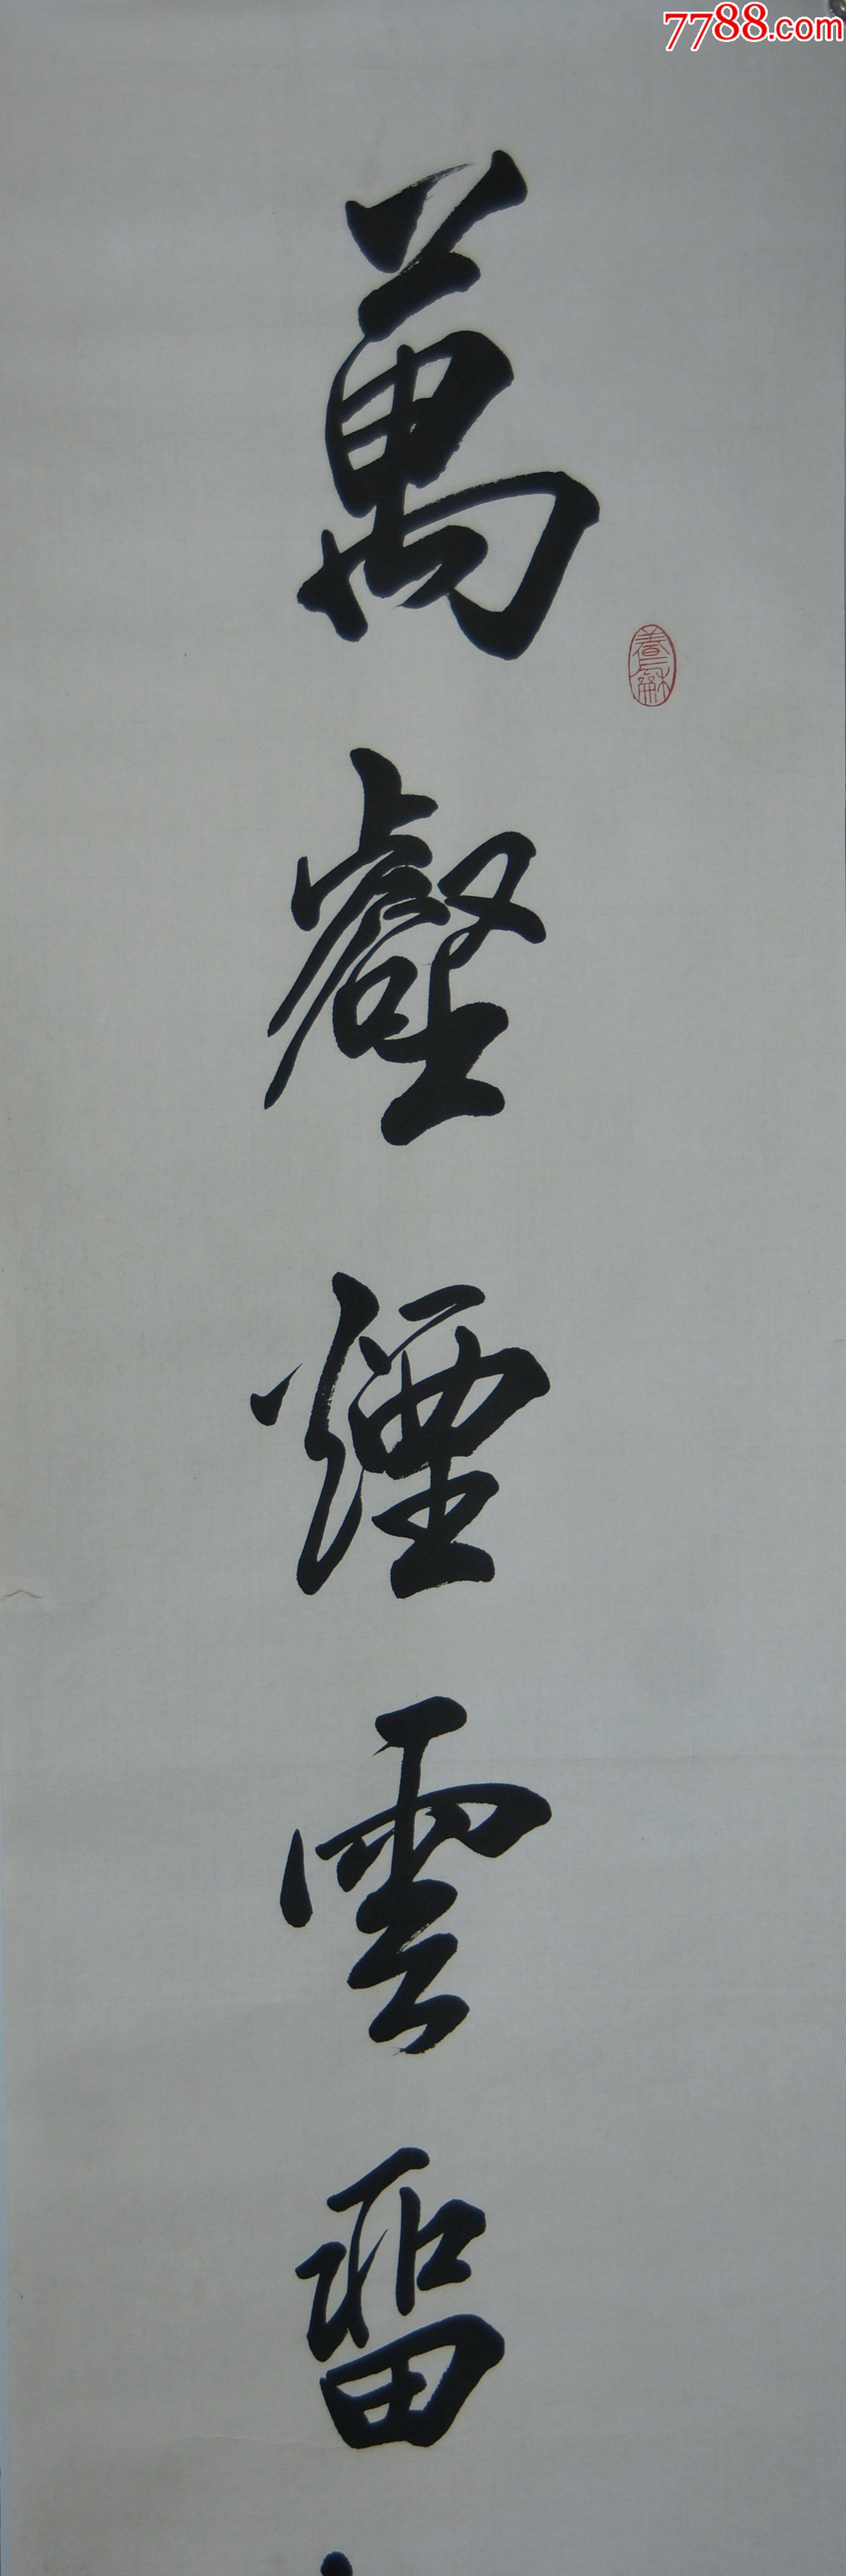 7788.com
萬壑煙雲留